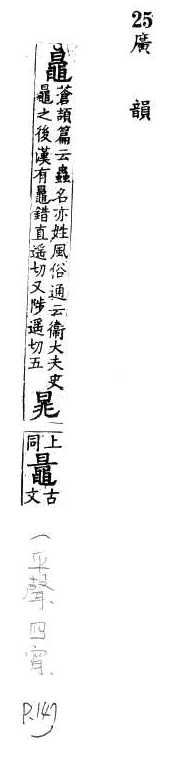 25廣　韻
鼂
蒼頡篇云蟲名亦姓風俗通云衞大夫史
鼂之後漢有鼂錯直遥切又陟遥切五
晁
上
同
古
文
(平聲.四宵.
P.147)